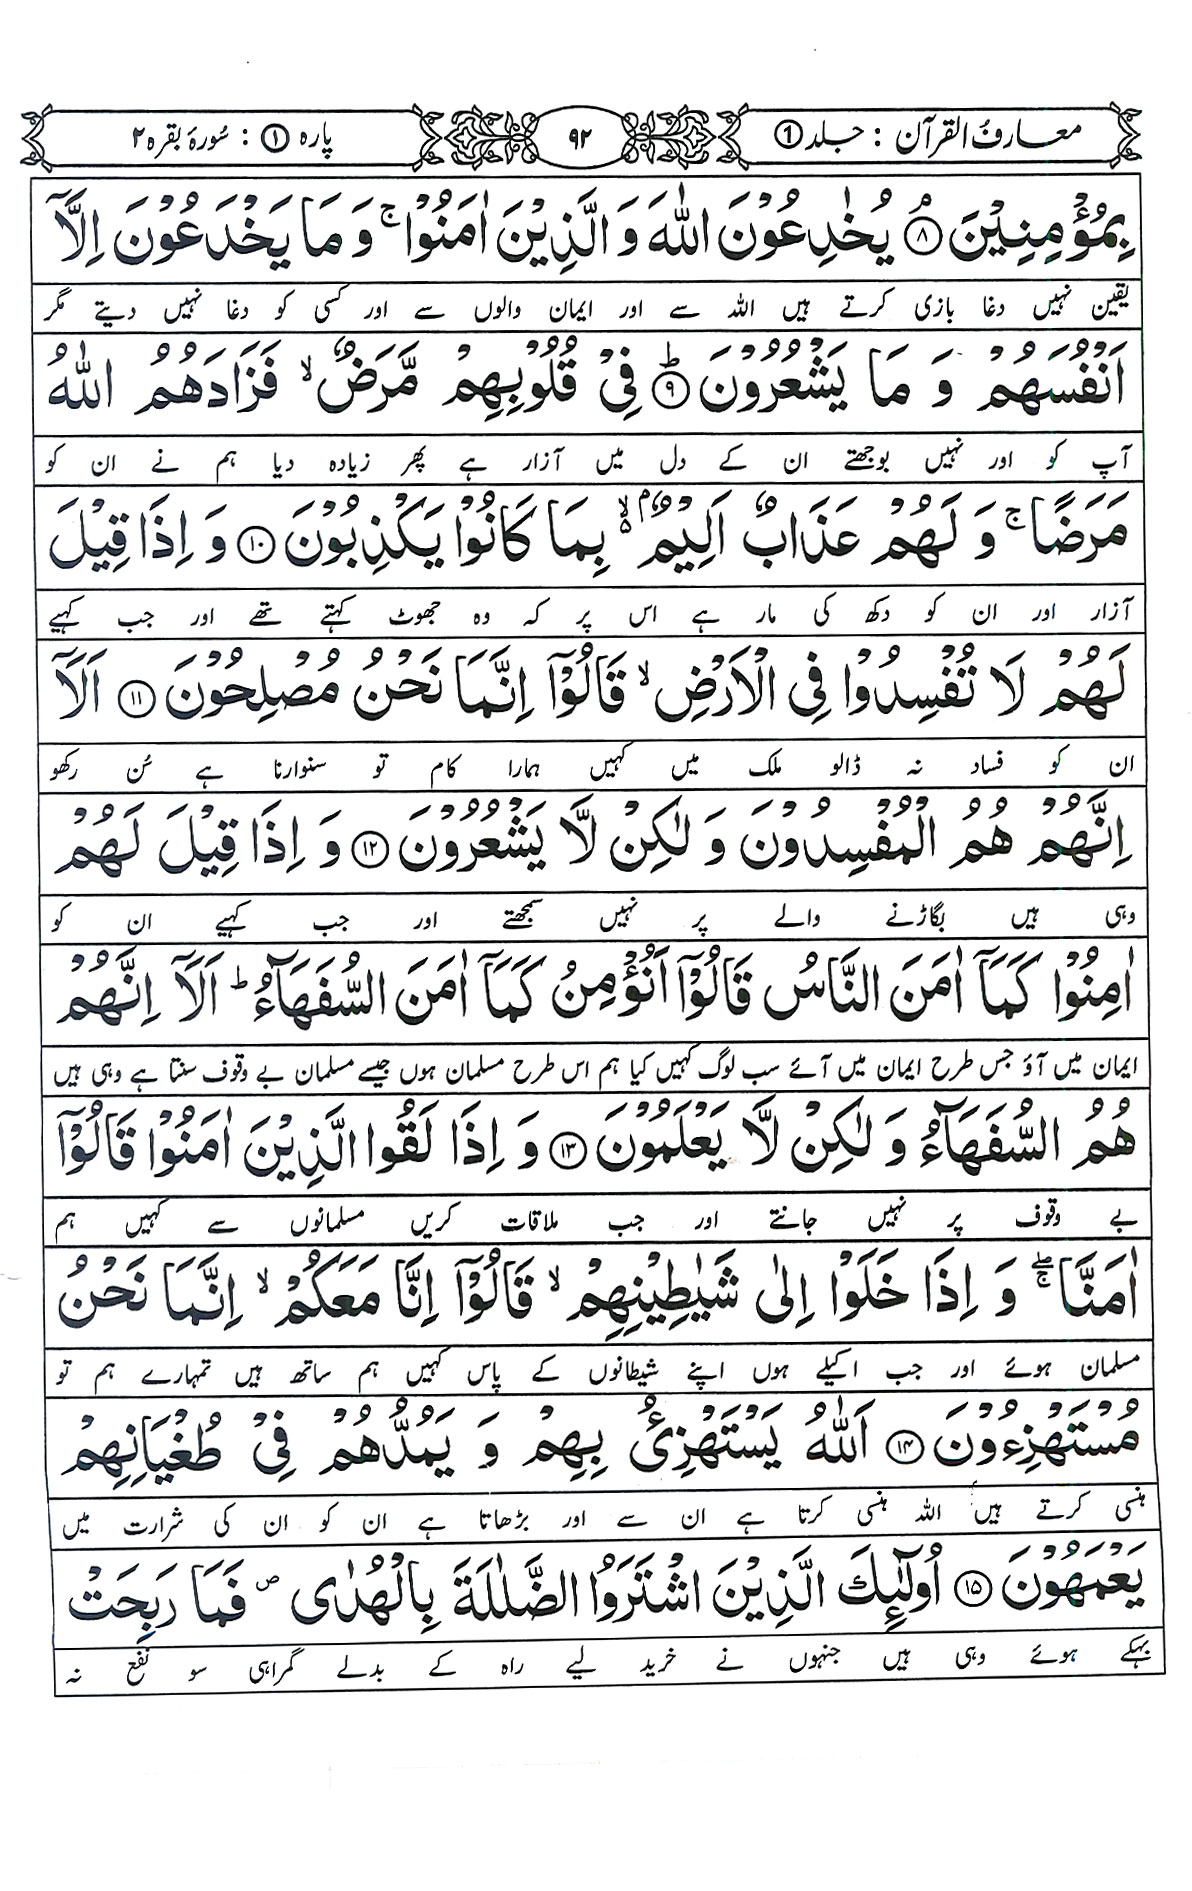 معارف القرآن : جلد ①
۹۲
پارہ ① : سُورۂ بقرہ ۲
بِمُؤْمِنِيْنَ ۘ ﴿۸﴾ يُخٰدِعُوْنَ اللّٰهَ وَ الَّذِيْنَ اٰمَنُوْا ۚ وَ مَا يَخْدَعُوْنَ اِلَّاۤ
یقین نہیں دغا بازی کرتے ہیں اللہ سے اور ایمان والوں سے اور کسی کو دغا نہیں دیتے مگر
اَنْفُسَهُمْ وَ مَا يَشْعُرُوْنَ ؕ ﴿۹﴾ فِیْ قُلُوْبِهِمْ مَّرَضٌ ۙ فَزَادَهُمُ اللّٰهُ
آپ کو اور نہیں بوجھتے ان کے دل میں آزار ہے پھر زیادہ دیا ہم نے ان کو
مَرَضًا ۚ وَ لَهُمْ عَذَابٌ اَلِيْمٌۢ ۙ۬ بِمَا كَانُوْا يَكْذِبُوْنَ ﴿۱۰﴾ وَ اِذَا قِيْلَ
آزار اور ان کو دکھ کی مار ہے اس پر کہ وہ جھوٹ کہتے تھے اور جب کہیے
لَهُمْ لَا تُفْسِدُوْا فِی الْاَرْضِ ۙ قَالُوْۤا اِنَّمَا نَحْنُ مُصْلِحُوْنَ ﴿۱۱﴾ اَلَاۤ
ان کو فساد نہ ڈالو ملک میں کہیں ہمارا کام تو سنوارنا ہے سُن رکھو
اِنَّهُمْ هُمُ الْمُفْسِدُوْنَ وَ لٰكِنْ لَّا يَشْعُرُوْنَ ﴿۱۲﴾ وَ اِذَا قِيْلَ لَهُمْ
وہی ہیں بگاڑنے والے پر نہیں سمجھتے اور جب کہیے ان کو
اٰمِنُوْا كَمَاۤ اٰمَنَ النَّاسُ قَالُوْۤا اَنُؤْمِنُ كَمَاۤ اٰمَنَ السُّفَهَآءُ ؕ اَلَاۤ اِنَّهُمْ
ایمان میں آؤ جس طرح ایمان میں آئے سب لوگ کہیں کیا ہم اس طرح مسلمان ہوں جیسے مسلمان بے وقوف سنتا ہے وہی ہیں
هُمُ السُّفَهَآءُ وَ لٰكِنْ لَّا يَعْلَمُوْنَ ﴿۱۳﴾ وَ اِذَا لَقُوا الَّذِيْنَ اٰمَنُوْا قَالُوْۤا
بے وقوف پر نہیں جانتے اور جب ملاقات کریں مسلمانوں سے کہیں ہم
اٰمَنَّا ۖۚ وَ اِذَا خَلَوْا اِلٰی شَيٰطِيْنِهِمْ ۙ قَالُوْۤا اِنَّا مَعَكُمْ ۙ اِنَّمَا نَحْنُ
مسلمان ہوئے اور جب اکیلے ہوں اپنے شیطانوں کے پاس کہیں ہم ساتھ ہیں تمہارے ہم تو
مُسْتَهْزِءُوْنَ ﴿۱۴﴾ اَللّٰهُ يَسْتَهْزِئُ بِهِمْ وَ يَمُدُّهُمْ فِیْ طُغْيَانِهِمْ
ہنسی کرتے ہیں اللہ ہنسی کرتا ہے ان سے اور بڑھاتا ہے ان کو ان کی شرارت میں
يَعْمَهُوْنَ ﴿۱۵﴾ اُولٰٓئِكَ الَّذِيْنَ اشْتَرَوُا الضَّلٰلَةَ بِالْهُدٰی ۪ فَمَا رَبِحَتْ
بہکے ہوئے وہی ہیں جنہوں نے خرید لیے راہ کے بدلے گمراہی سو نفع نہ